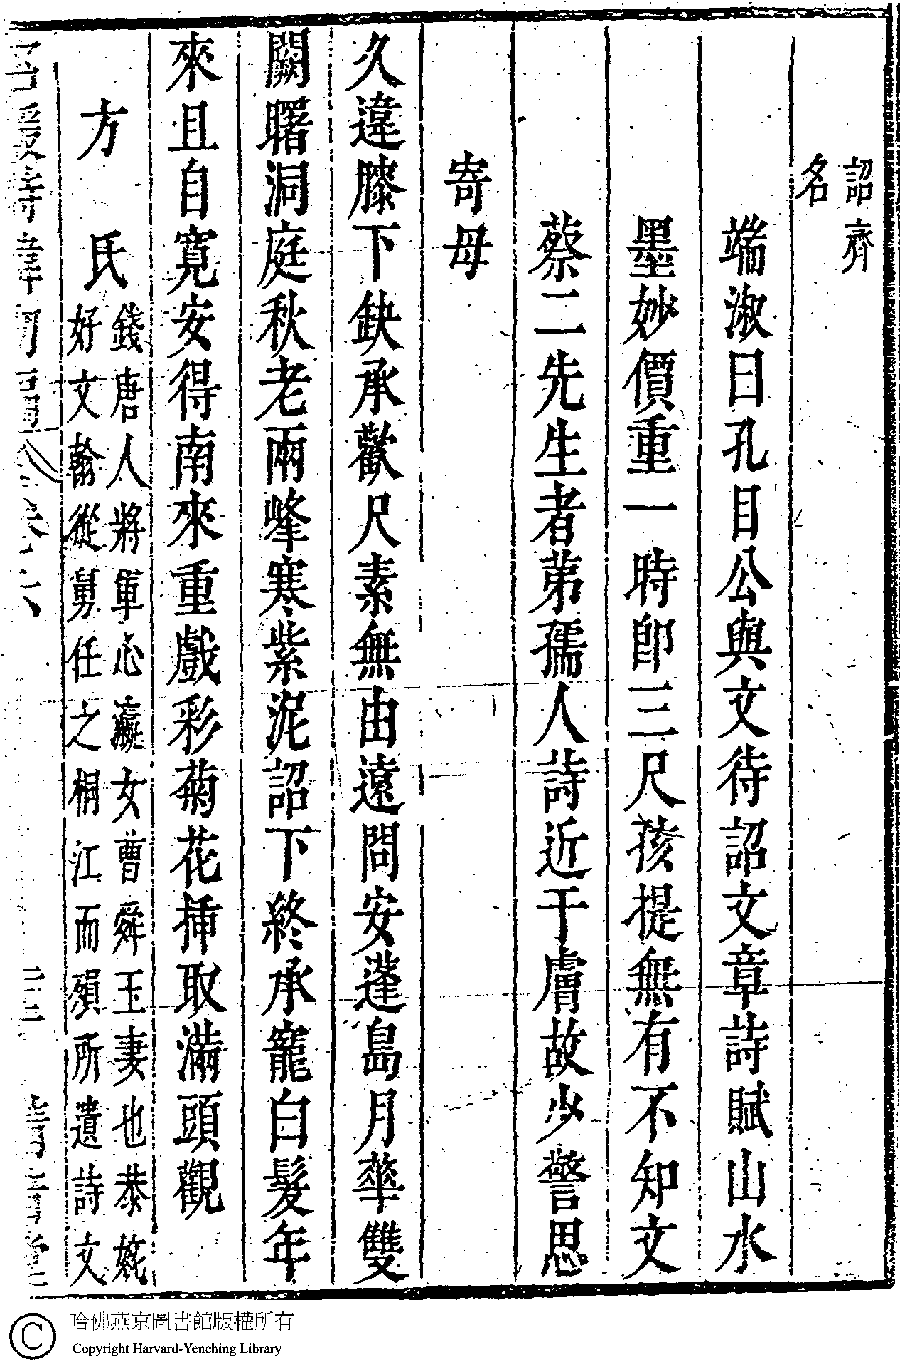 詔齊
名
端淑曰孔目公與文待詔文章詩賦山水
墨妙價重一時卽三尺孩提無有不知文
蔡二先生者第孺人詩近于膚故少警思
寄母
久違膝下缺承歡尺素無由遠問安蓬島月華雙
闕曙洞庭秋老兩峰寒紫泥詔下終承寵白髮年
來且自寬安得南來重戲彩菊花挿取滿頭觀
方氏
錢唐人將軍心瀛女曹舜玉妻也恭婉
好文翰從舅任之桐江而殞所遺詩文
名媛詩緯初編 卷之六
哈佛燕京圖書館版權所有
Copyright Harvard-Yenching Library